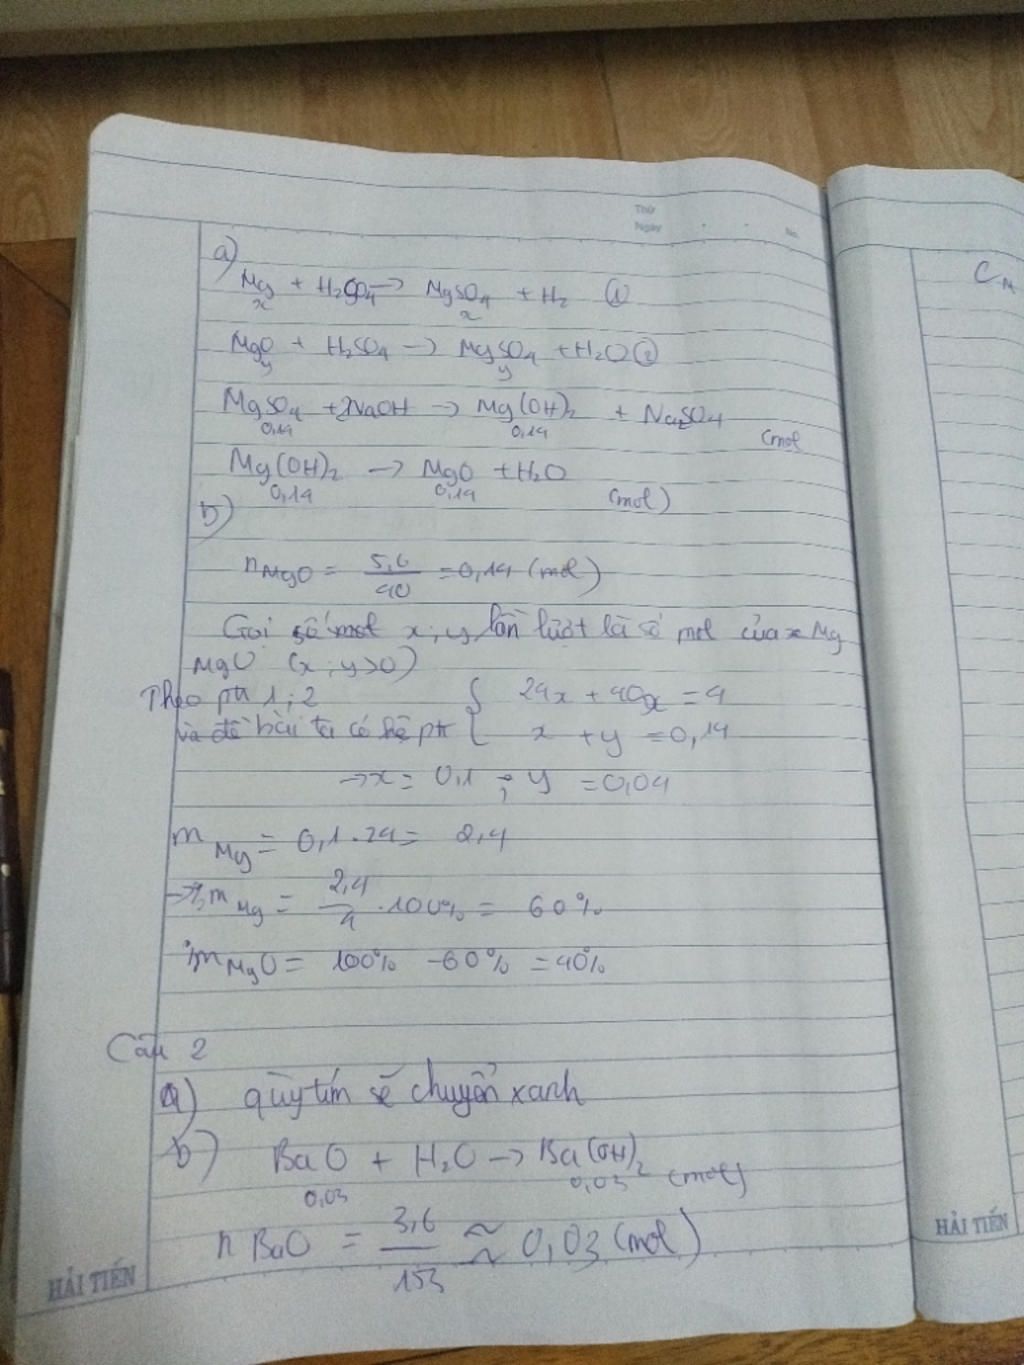 Thứ
Ngày
No.
a)
Mg + H₂SO₄ → MgSO₄ + H₂ ①
x x
MgO + H₂SO₄ → MgSO₄ + H₂O ②
y y
MgSO₄ + 2NaOH → Mg(OH)₂ + Na₂SO₄
0,14 0,14 (mol
Mg(OH)₂ → MgO + H₂O
0,14 0,14 (mol)
b)
nMgO = 5,6/40 = 0,14 (mol)
Gọi số mol x; y lần lượt là số mol của Mg
MgO (x; y>0)
Theo pth 1; 2 { 24x + 40x = 4
và đề bài ta có hệ pt x + y = 0,14
→ x = 0,1 ; y = 0,04
m Mg = 0,1 . 24 = 2,4
→ %m Mg = 2,4/4 . 100% = 60%
%m MgO = 100% - 60% = 40%
Câu 2
a) quỳ tím sẽ chuyển xanh
b) BaO + H₂O → Ba(OH)₂
0,03 0,03 (mol)
n BaO = 3,6/153 ≈ 0,03 (mol)
HẢI TIẾN
CM
HẢI TIẾN